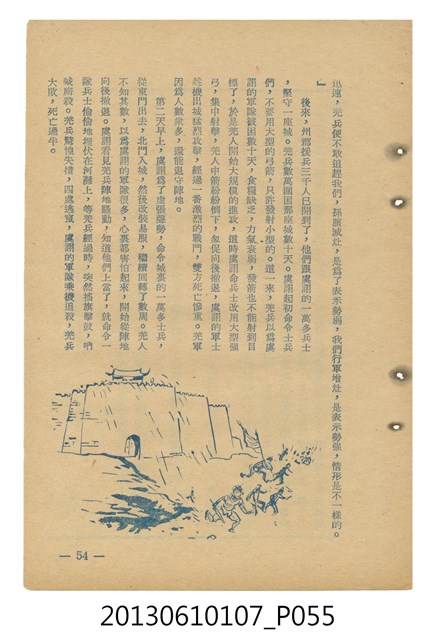 迅速，羌兵便不敢追趕我們，孫臏減灶，是為了表示勢弱，我們行軍增灶，是表示勢強，情形是不一樣的。
』
後來，州郡援兵三千人已開到了，他們跟虞詡的一萬多兵士
，堅守一座城。羌兵數萬圍困那座城數十天。虞詡起初命令士兵
們，不要用大型的弓箭，只許發射小型的。這一來，羌兵以為虞
詡的軍隊被困數十天，食糧缺乏，力氣衰弱，發箭也不能射到目
標了，於是羌人開始大規模的進攻，這時虞詡命兵士改用大型強
弓，集中射擊，羌人中箭紛紛倒下，忽促向後撤退，虞詡的軍士
趁機出城猛烈攻擊，經過一番激烈的戰鬥，雙方死亡慘重。羌軍
因為人數衆多，還能退守陣地。
第二天早上，虞詡為了虛張聲勢，命令城裏的一萬多士兵，
從東門出去，北門入城，然後改裝易服，繼續回轉了數周。羌人
不知其數，以為虞詡的軍隊很多，心裏都害怕起來，開始從陣地
向後撤退。虞詡看見羌兵陣地騷動，知道他們上當了，就命令一
隊兵士偷偷地埋伏在河灘上，等羌兵經過時，突然搖旗擊鼓，吶
喊廝殺。羌兵驚惶失措，四處逃竄，虞詡的軍隊乘機追殺，羌兵
大敗，死亡過半。
— 54 —
20130610107_P055